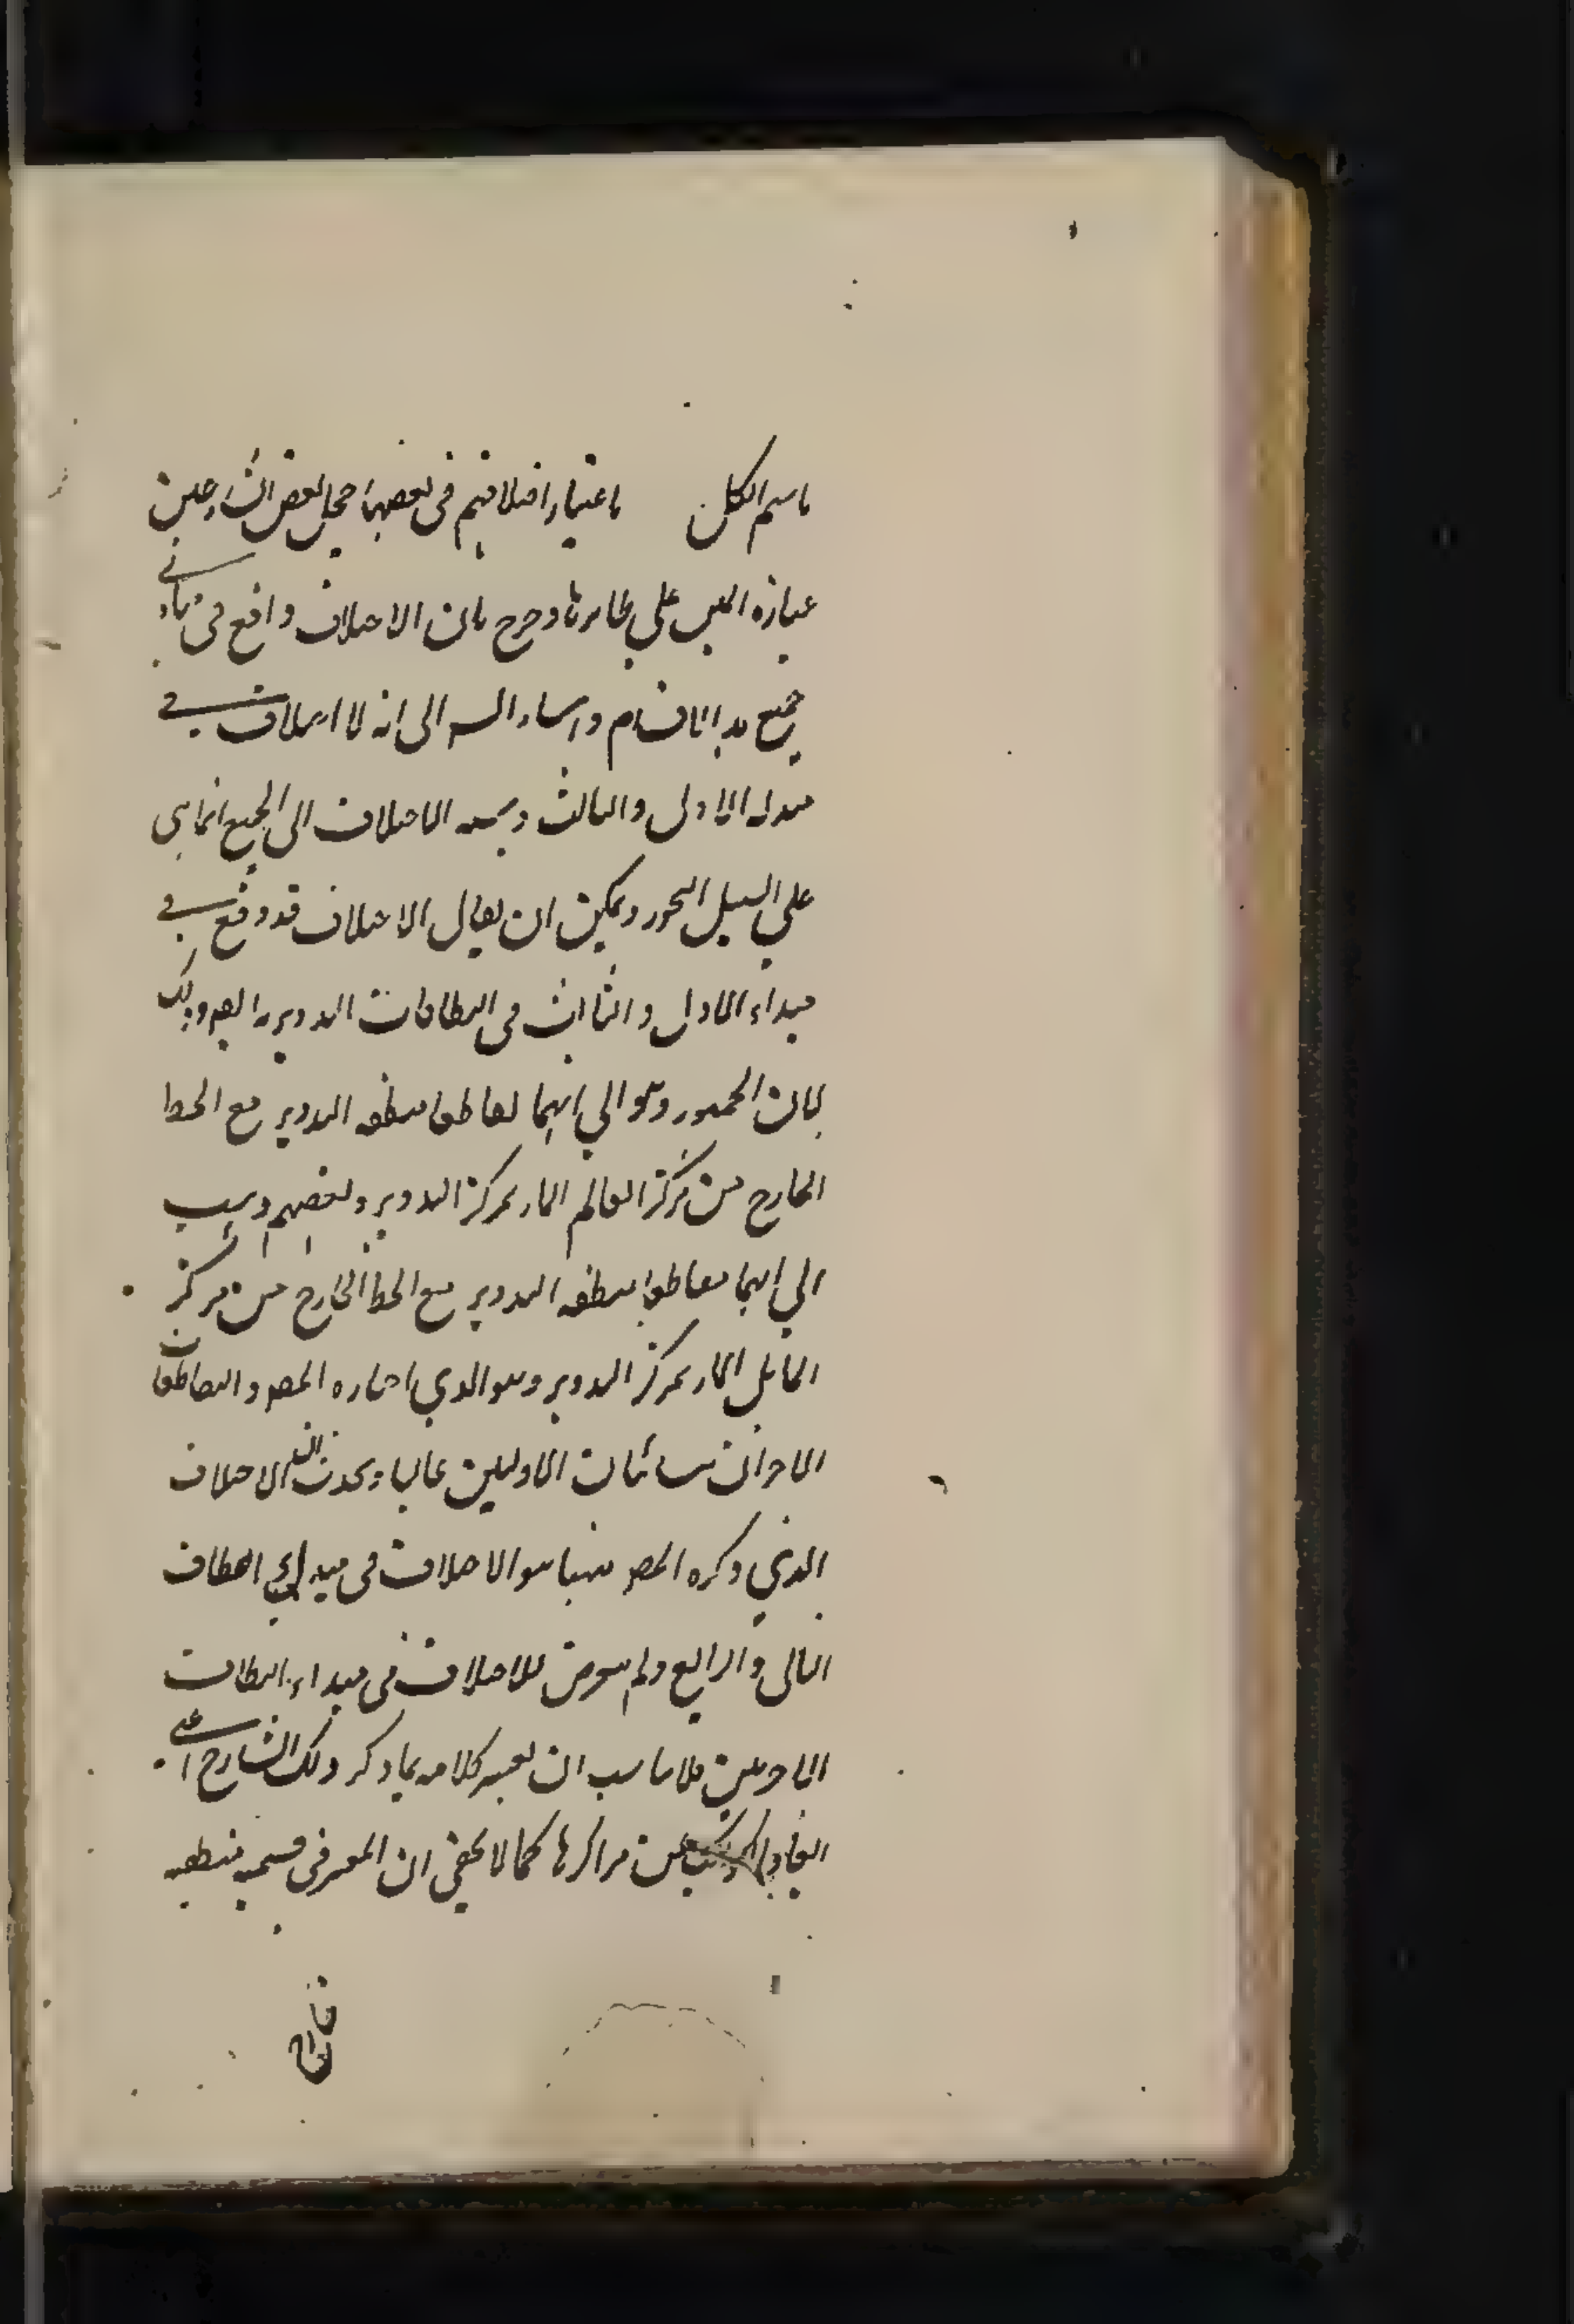 باسم الكل باعتبار اختلافهم في بعضها حمل بعض الشارحين
عبارة المص على ظاهرها وصرح بان الاختلاف واقع في مبادي
جميع هذه الاقسام واشار السيد الى انه لا اختلاف في
مبداء الاول والثالث ونسبة الاختلاف الى الجميع انما هي
على سبيل التجوز ويمكن ان يقال الاختلاف قد وقع في
مبداء الاول والثالث في النطاقات التدويرية ايضا وذلك
بان الجمهور ذهبوا الى انهما تقاطعا منطقة التدوير مع الخط
الخارج من مركز العالم المار بمركز التدوير وبعضهم ذهب
الى انهما تقاطعا منطقة التدوير مع الخط الخارج من مركز
المايل المار بمركز التدوير وهو الذي اختاره المص والتقاطعان
الاخران الاولين غالبا ويحدث الاختلاف
الذي ذكره المص ههنا هو الاختلاف في مبدائي النطاق
الثاني والرابع ولم يتعرض للاختلاف في مبداء النطاقات
الاخريين فلا يناسب ان يفسر كلامه بما ذكر ذلك الشارح اعني
ابعاد الكواكب عن مراكزها كما لا يخفى ان المعتبر في قسمة منطقة
خارج